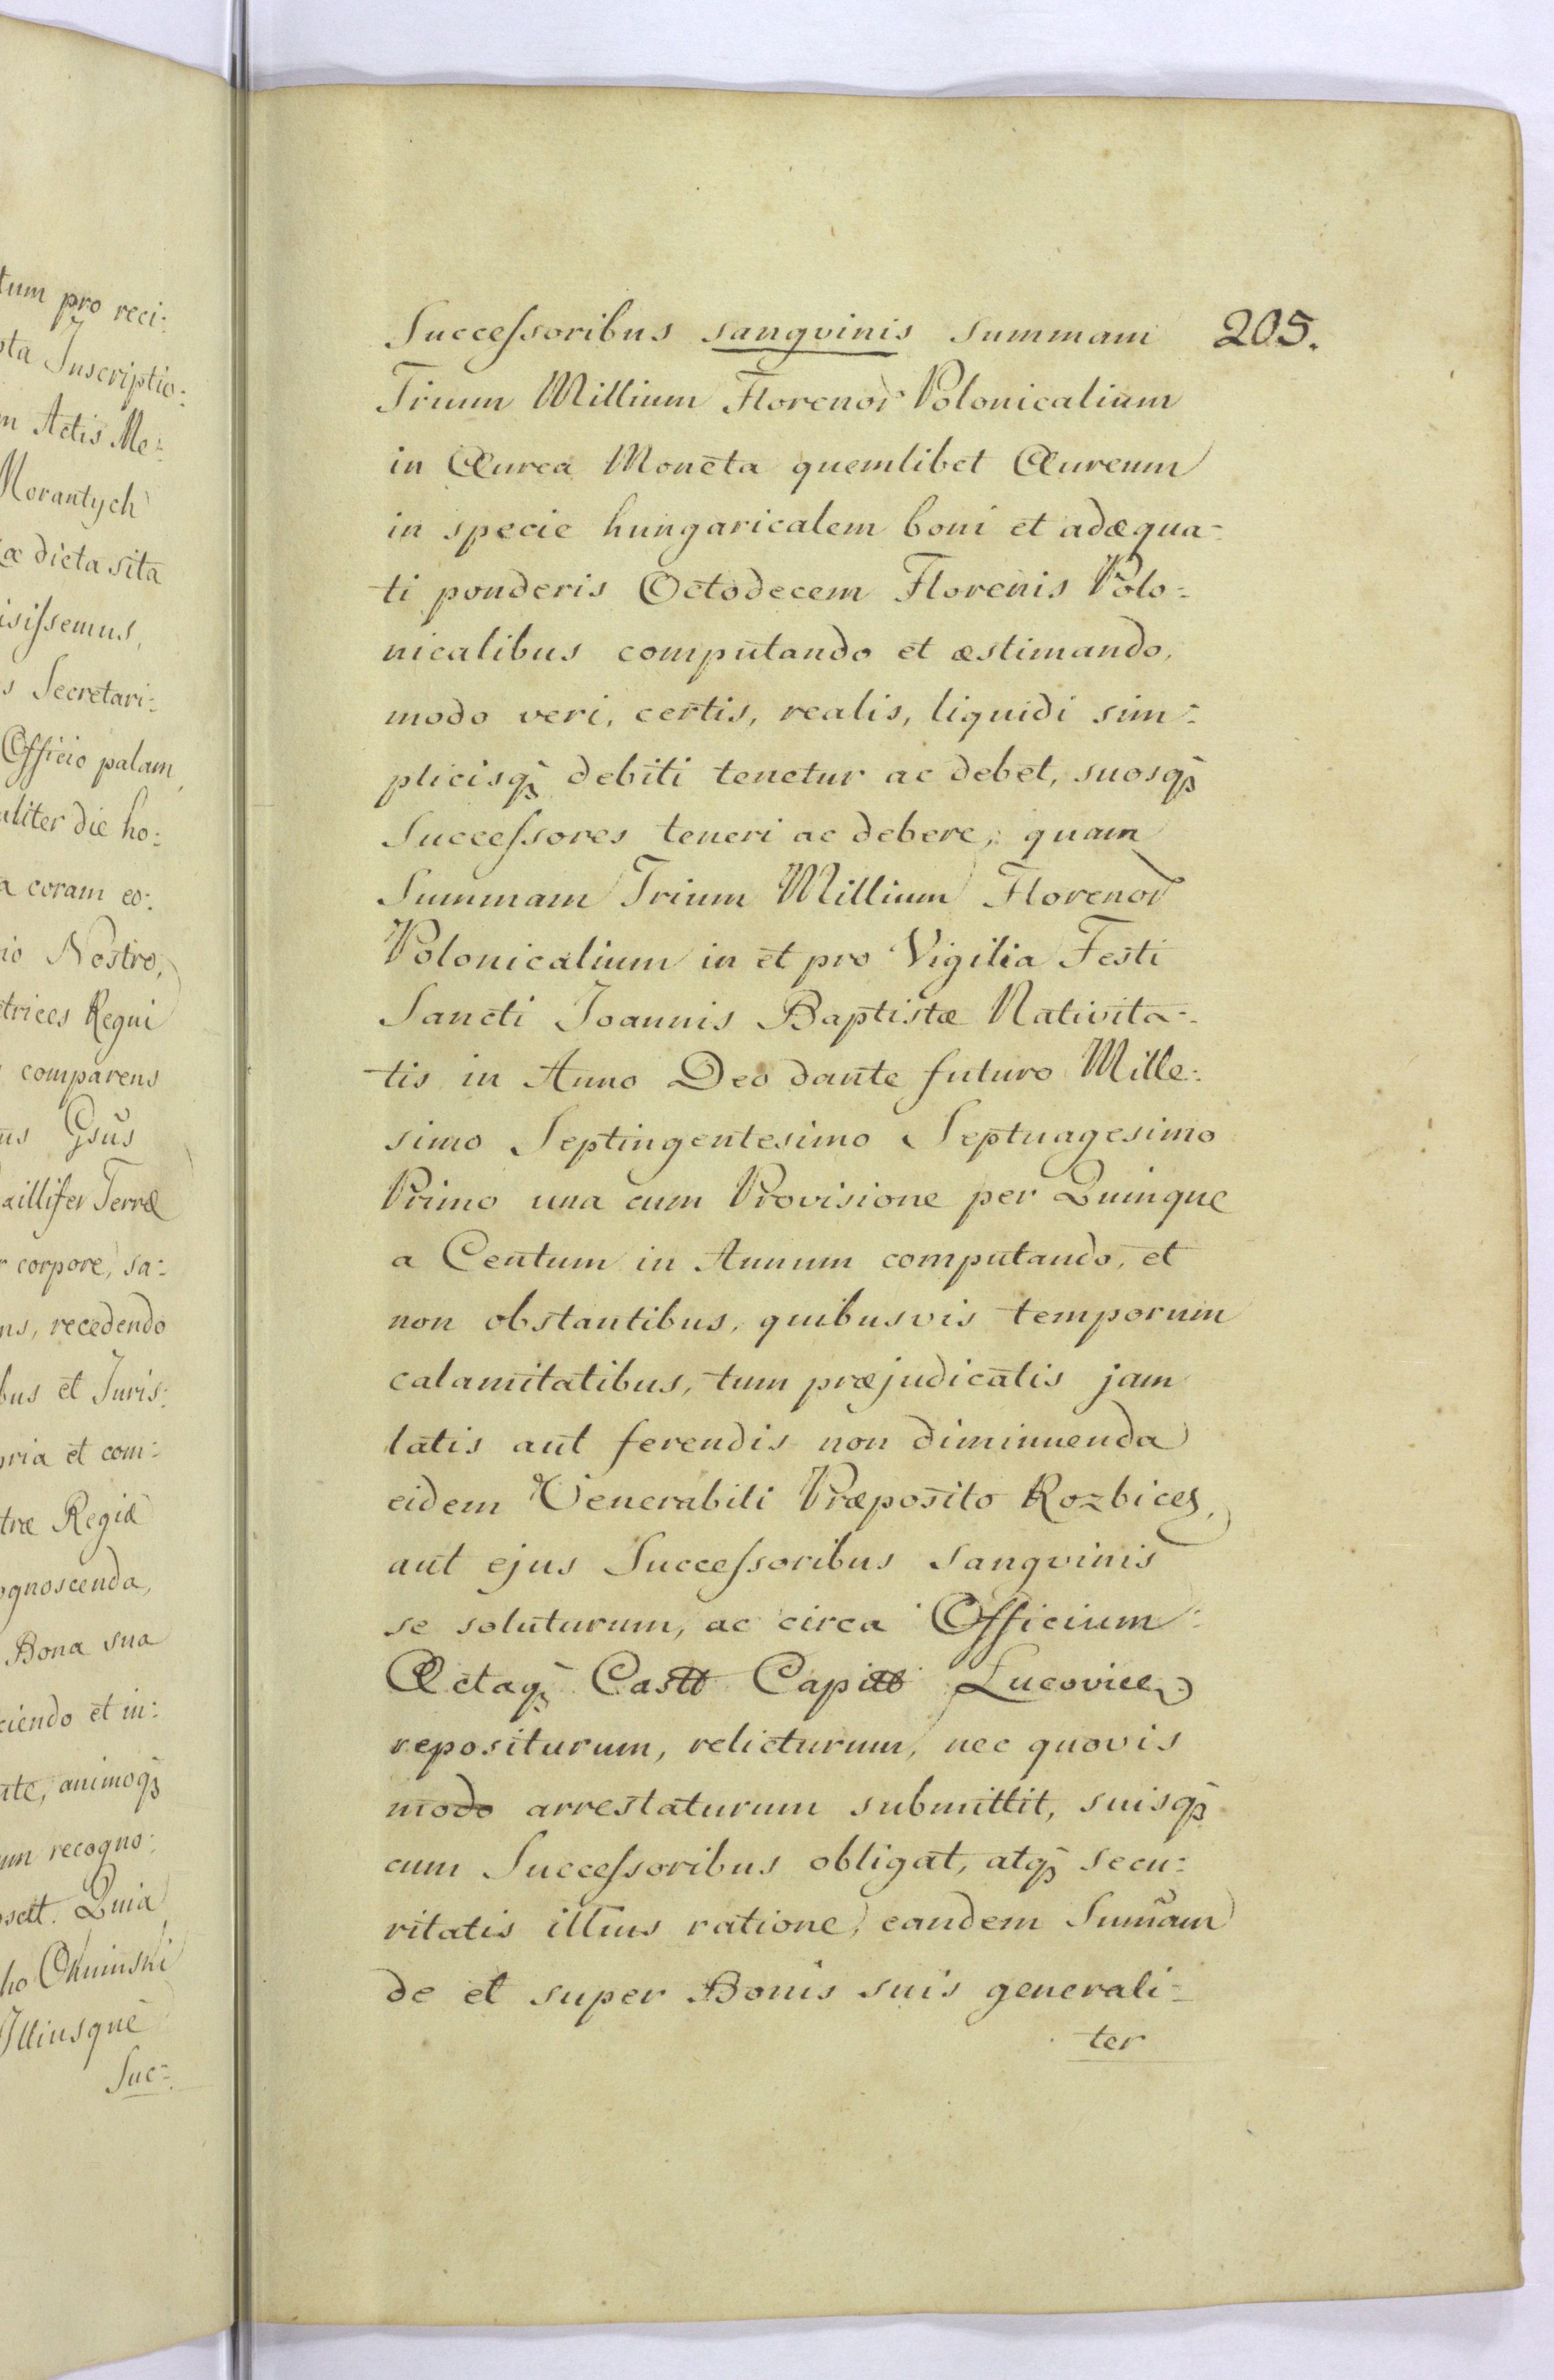 tum pro reci:
ta Inscriptio:
m Actis Me:
Morantych
æ dicta sita
isissemus,
s Secretari:
Officio palam,
aliter die ho:
a coram eo:
io Nostro,
trices Regni
comparens
us Gsus
aillifer Terræ
r corpore, sa:
ns, recedendo
bus et Juris:
ria et com:
træ Regiæ
ognoscenda,
Bona sua
ciendo et in:
nte, animoqꝫ
um recogno:
Quia
ho Okuinski
Illiusque
Suc:
Successoribus sangvinis summam 205.
Trium Millium Florenor Polonicalium
in Aurea Moneta quemlibet Aureum
in specie hungaricalem boni et adæqua:
ti ponderis Octodecem Florenis Polo:
nicalibus computando et æstimando,
modo veri, certis, realis, liquidi sim:
plicisqꝫ debiti tenetur ac debet, suosqꝫ
Successores teneri ac debere, quam
Summam Trium Millium Florenor
Polonicalium in et pro Vigilia Festi
Sancti Joannis Baptistæ Nativita:
tis in Anno Deo dante futuro Mille:
simo Septingentesimo Septuagesimo
Primo una cum Provisione per Quinque
a Centum in Annum computando, et
non obstantibus, quibusvis temporum
calamitatibus, tum præjudicatis jam
latis aut ferendis non diminuenda
eidem Venerabili Præposito Rozbices,
aut ejus Successoribus Sangvinis
se soluturum, ac circa Officium
Actaqꝫ Castt Capitt Lucovicen
repositurum, relicturum, nec quovis
modo arrestaturum submittit, suisqꝫ
cum Successoribus obligat, atqꝫ secu:
ritatis illius ratione, eandem Sum̃am
de et super Bonis suis generali:
ter